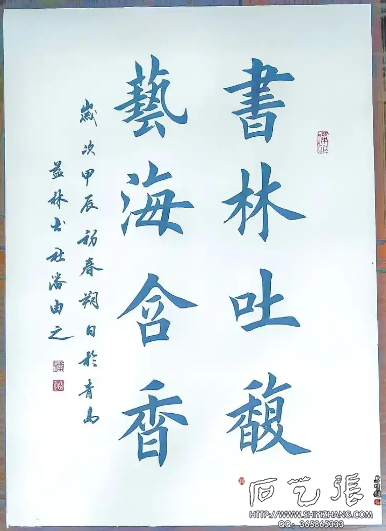 書林吐馥
藝海含香
歲次甲辰初春朔日於青島
益林書社潘由之
石艺張
HTTP://WWW.SHIYIZHANG.COM
QQ: 365865333